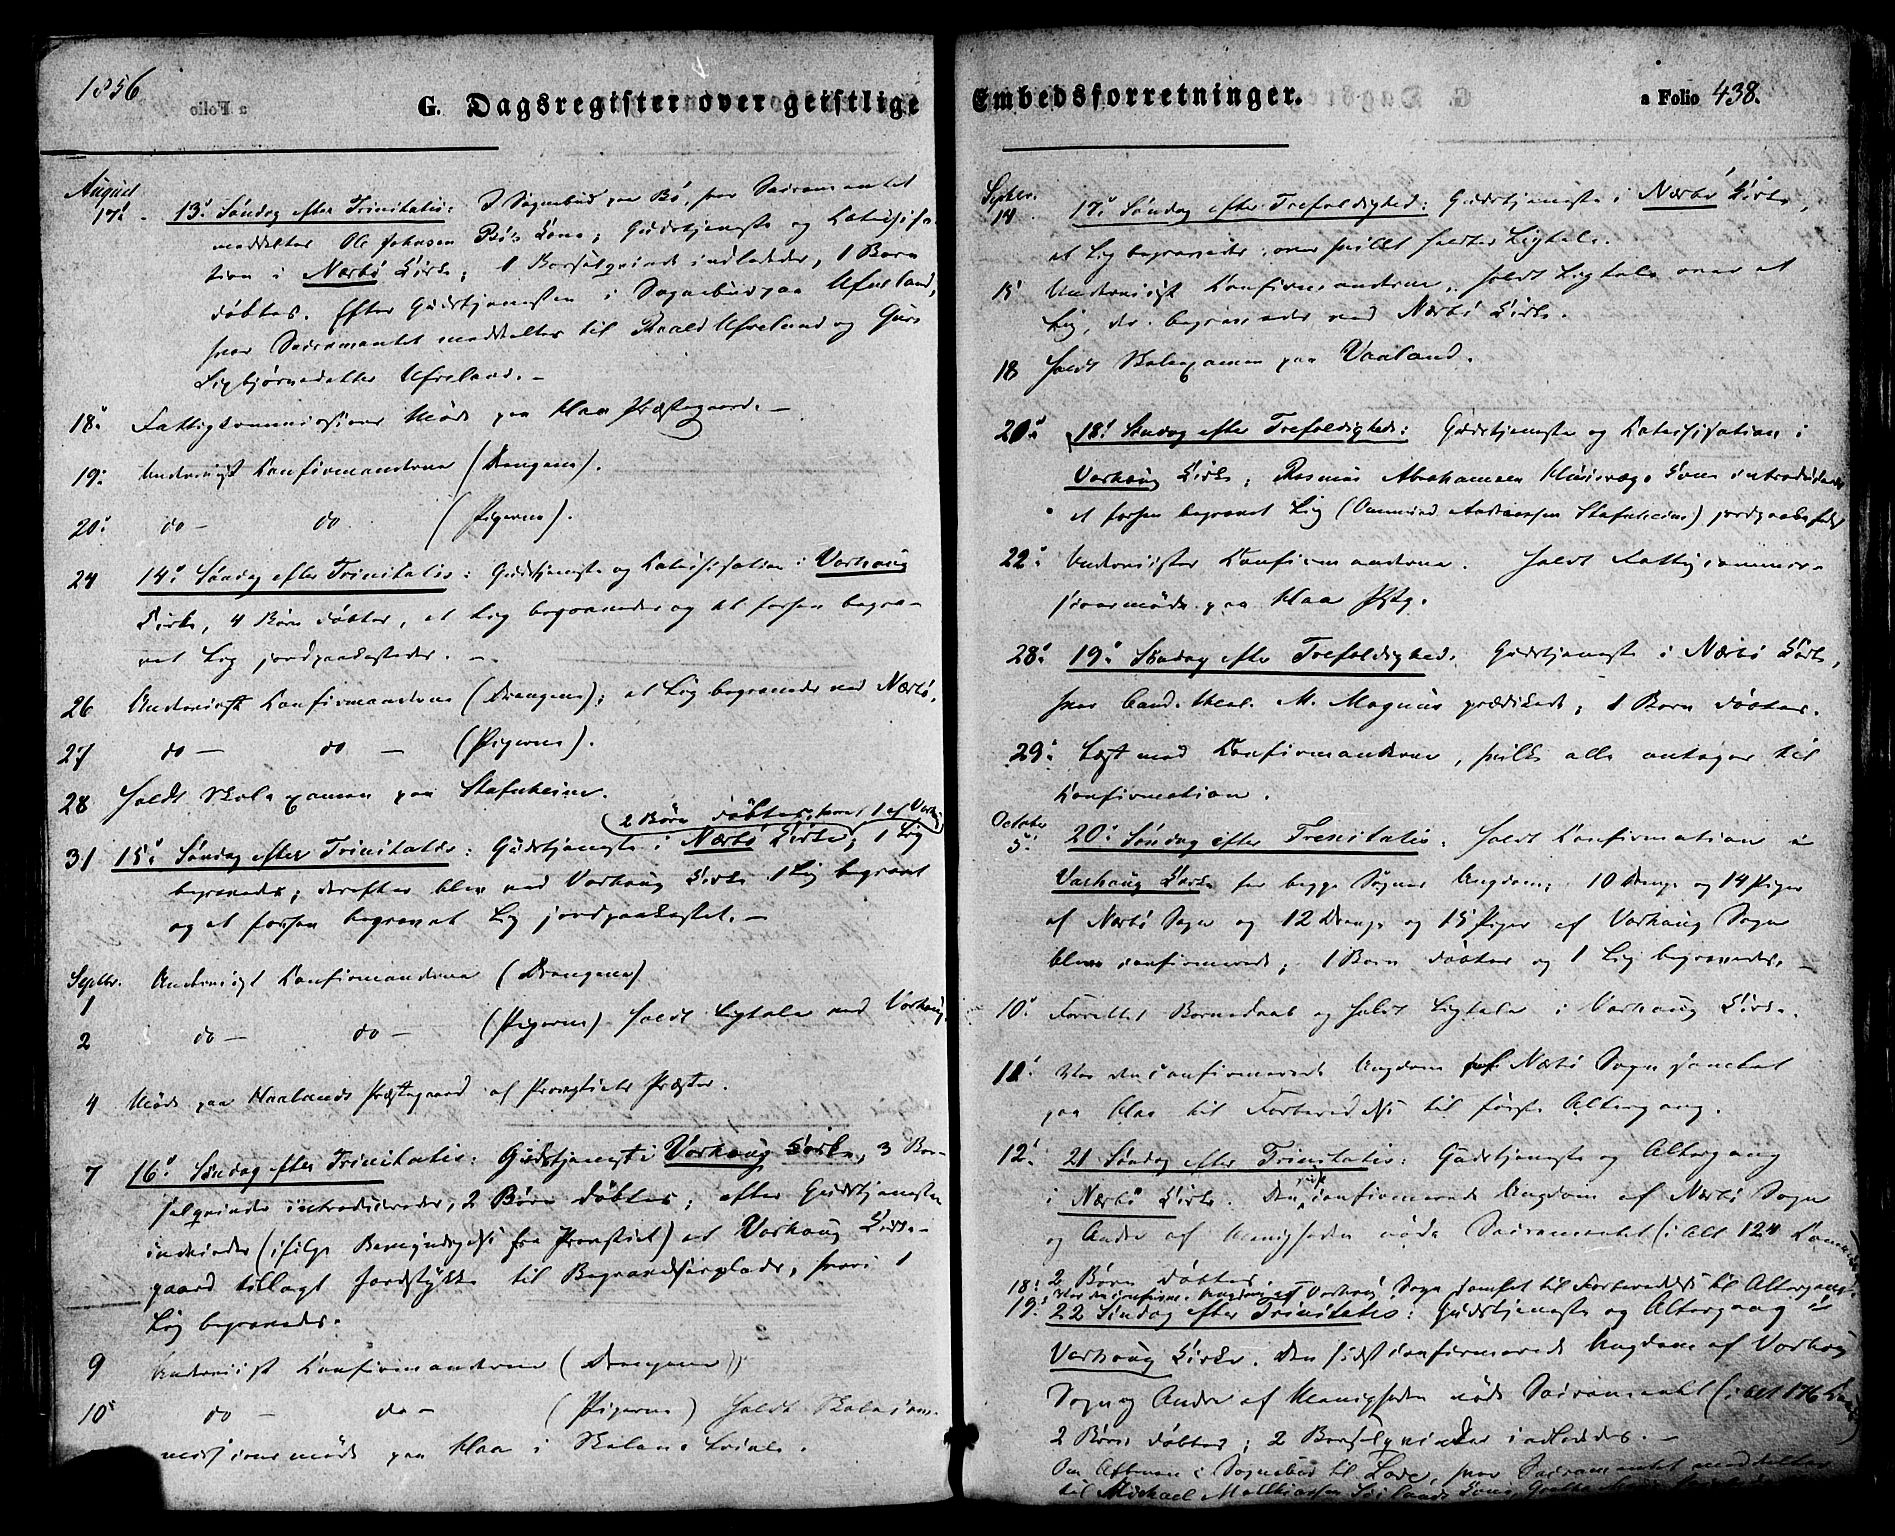 1856
G. Dagsregister over geistlige
August
17. 13. Søndag efter Trinitatis: I Sognebud paa Bø, hvor Sacramentet
meddeltes Ole Johnsen Bøes Kone; Gudstjeneste og Katechisa-
tion i Nærbø Kirke; 1 Barselqvinde indlededes, 1 Barn
døbtes. Efter Gudstjenesten i Sognebud paa Ufseland,
hvor Sacramentet meddeltes til Ufseland og
Ufseland. -
18. Fattigcommissions Møde paa Haa Præstegaard. -
19. Underviist Konfirmanderne (Drengene).
20. do - do (Pigerne).
24 14. Søndag efter Trinitatis: Gudstjeneste og Katechisation i Varhoug
Kirke, 4 Børn døbtes, et Lig begravedes og et forhen begra-
vet Lig jordpaakastedes. -
26 Underviist Konfirmanderne (Drengene); et Lig begravedes ved Nærbø.
27 do - do - (Pigerne).
28 Holdt Skoleexamen paa Stafnheim.
2 Børn døbtes, hvoraf 1 af Varhoug
31 15. Søndag efter Trinitatis: Gudstjeneste i Nærbø Kirke, 1 Lig
begravedes; derefter blev ved Varhoug Kirke 1 Lig begravet
og et forhen begravet Lig jordpaakastet. -
Septbr.
1 Underviist Konfirmanderne (Drengene)
2 do - do - (Pigerne) Holdt Ligtale ved Varhoug.
4 Møde paa Haalands Præstegaard af Provstiets Præster.
7 16. Søndag efter Trinitatis: Gudstjeneste i Varhoug Kirke, 3 Bar-
selqvinder introduceredes, 2 Børn døbtes; efter Gudstjenesten
indviedes (ifølge Bemyndigelse fra Provstiet) et Varhoug Kirke-
gaard tillagt Jordstykke til Begravelsesplads, hvori 1
Lig begravedes.
9 Underviist Konfirmanderne (Drengene)
10 do - do - (Pigerne) Holdt Skolecom-
missionsmøde paa Haa i Skolens
Embedsforretninger.
a Folio 438.
Septbr.
14 17. Søndag efter Trefoldighed: Gudstjeneste i Nærbø Kirke,
et Lig begravedes, over hvilket holdtes Ligtale.
15 Underviist Konfirmanderne, holdt Ligtale over et
Lig, der begravedes ved Nærbø Kirke.
18 Holdt Skoleexamen paa Vaaland.
20. 18. Søndag efter Trefoldighed: Gudstjeneste og Katechisation i
Varhoug Kirke; Rasmus Abrahamsen Kone introduceredes
et forhen begravet Lig (Ommund Andreassen Stafnheim) jordpaakastedes
22. Underviistes Konfirmanderne. Holdt Fattigcommis-
sionsmøde paa Haa Pstg.
28. 19. Søndag efter Trefoldighed. Gudstjeneste i Nærbø Kirke,
hvor Cand. theol. M. Magnus prædikede; 1 Barn døbtes.
29. Læst med Konfirmanderne, hvilke alle antoges til
Konfirmation.
October
5. 20. Søndag efter Trinitatis. Holdt Konfirmation i
Varhoug Kirke for begge Sognes Ungdom; 10 Drenge og 14 Piger
af Nærbø Sogn og 12 Drenge og 15 Piger af Varhoug Sogn
bleve confirmerede; 1 Barn døbtes og 1 Lig begravedes. -
10. Forrettet Barnedaab og holdt Ligtale i Varhoug Kirke.
11. Var den confirmerede Ungdom af Nærbø Sogn samlet
paa Haa til Forberedelse til første Altergang.
12. 21 Søndag efter Trinitatis: Gudstjeneste og Altergang
i Nærbø Kirke. Den sidst confirmerede Ungdom af Nærbø Sogn
og Andre af Menigheden nøde Sacramentet (i Alt 124
2 Børn døbtes.
18. Var den confirm. Ungdom af Varhoug Sogn samlet til Forberedelse til Altergang.
19. 22 Søndag efter Trinitatis: Gudstjeneste og Altergang i
Varhoug Kirke. Den sidst confirmerede Ungdom af Varhoug
Sogn og Andre af Menigheden nøde Sacramentet (i Alt 176
2 Børn døbtes; 2 Barselqvinder indlededes. -
Om Aftenen i Sognebud til hvor Sacramentet meddeltes
til Michael Matthiassen Kone,